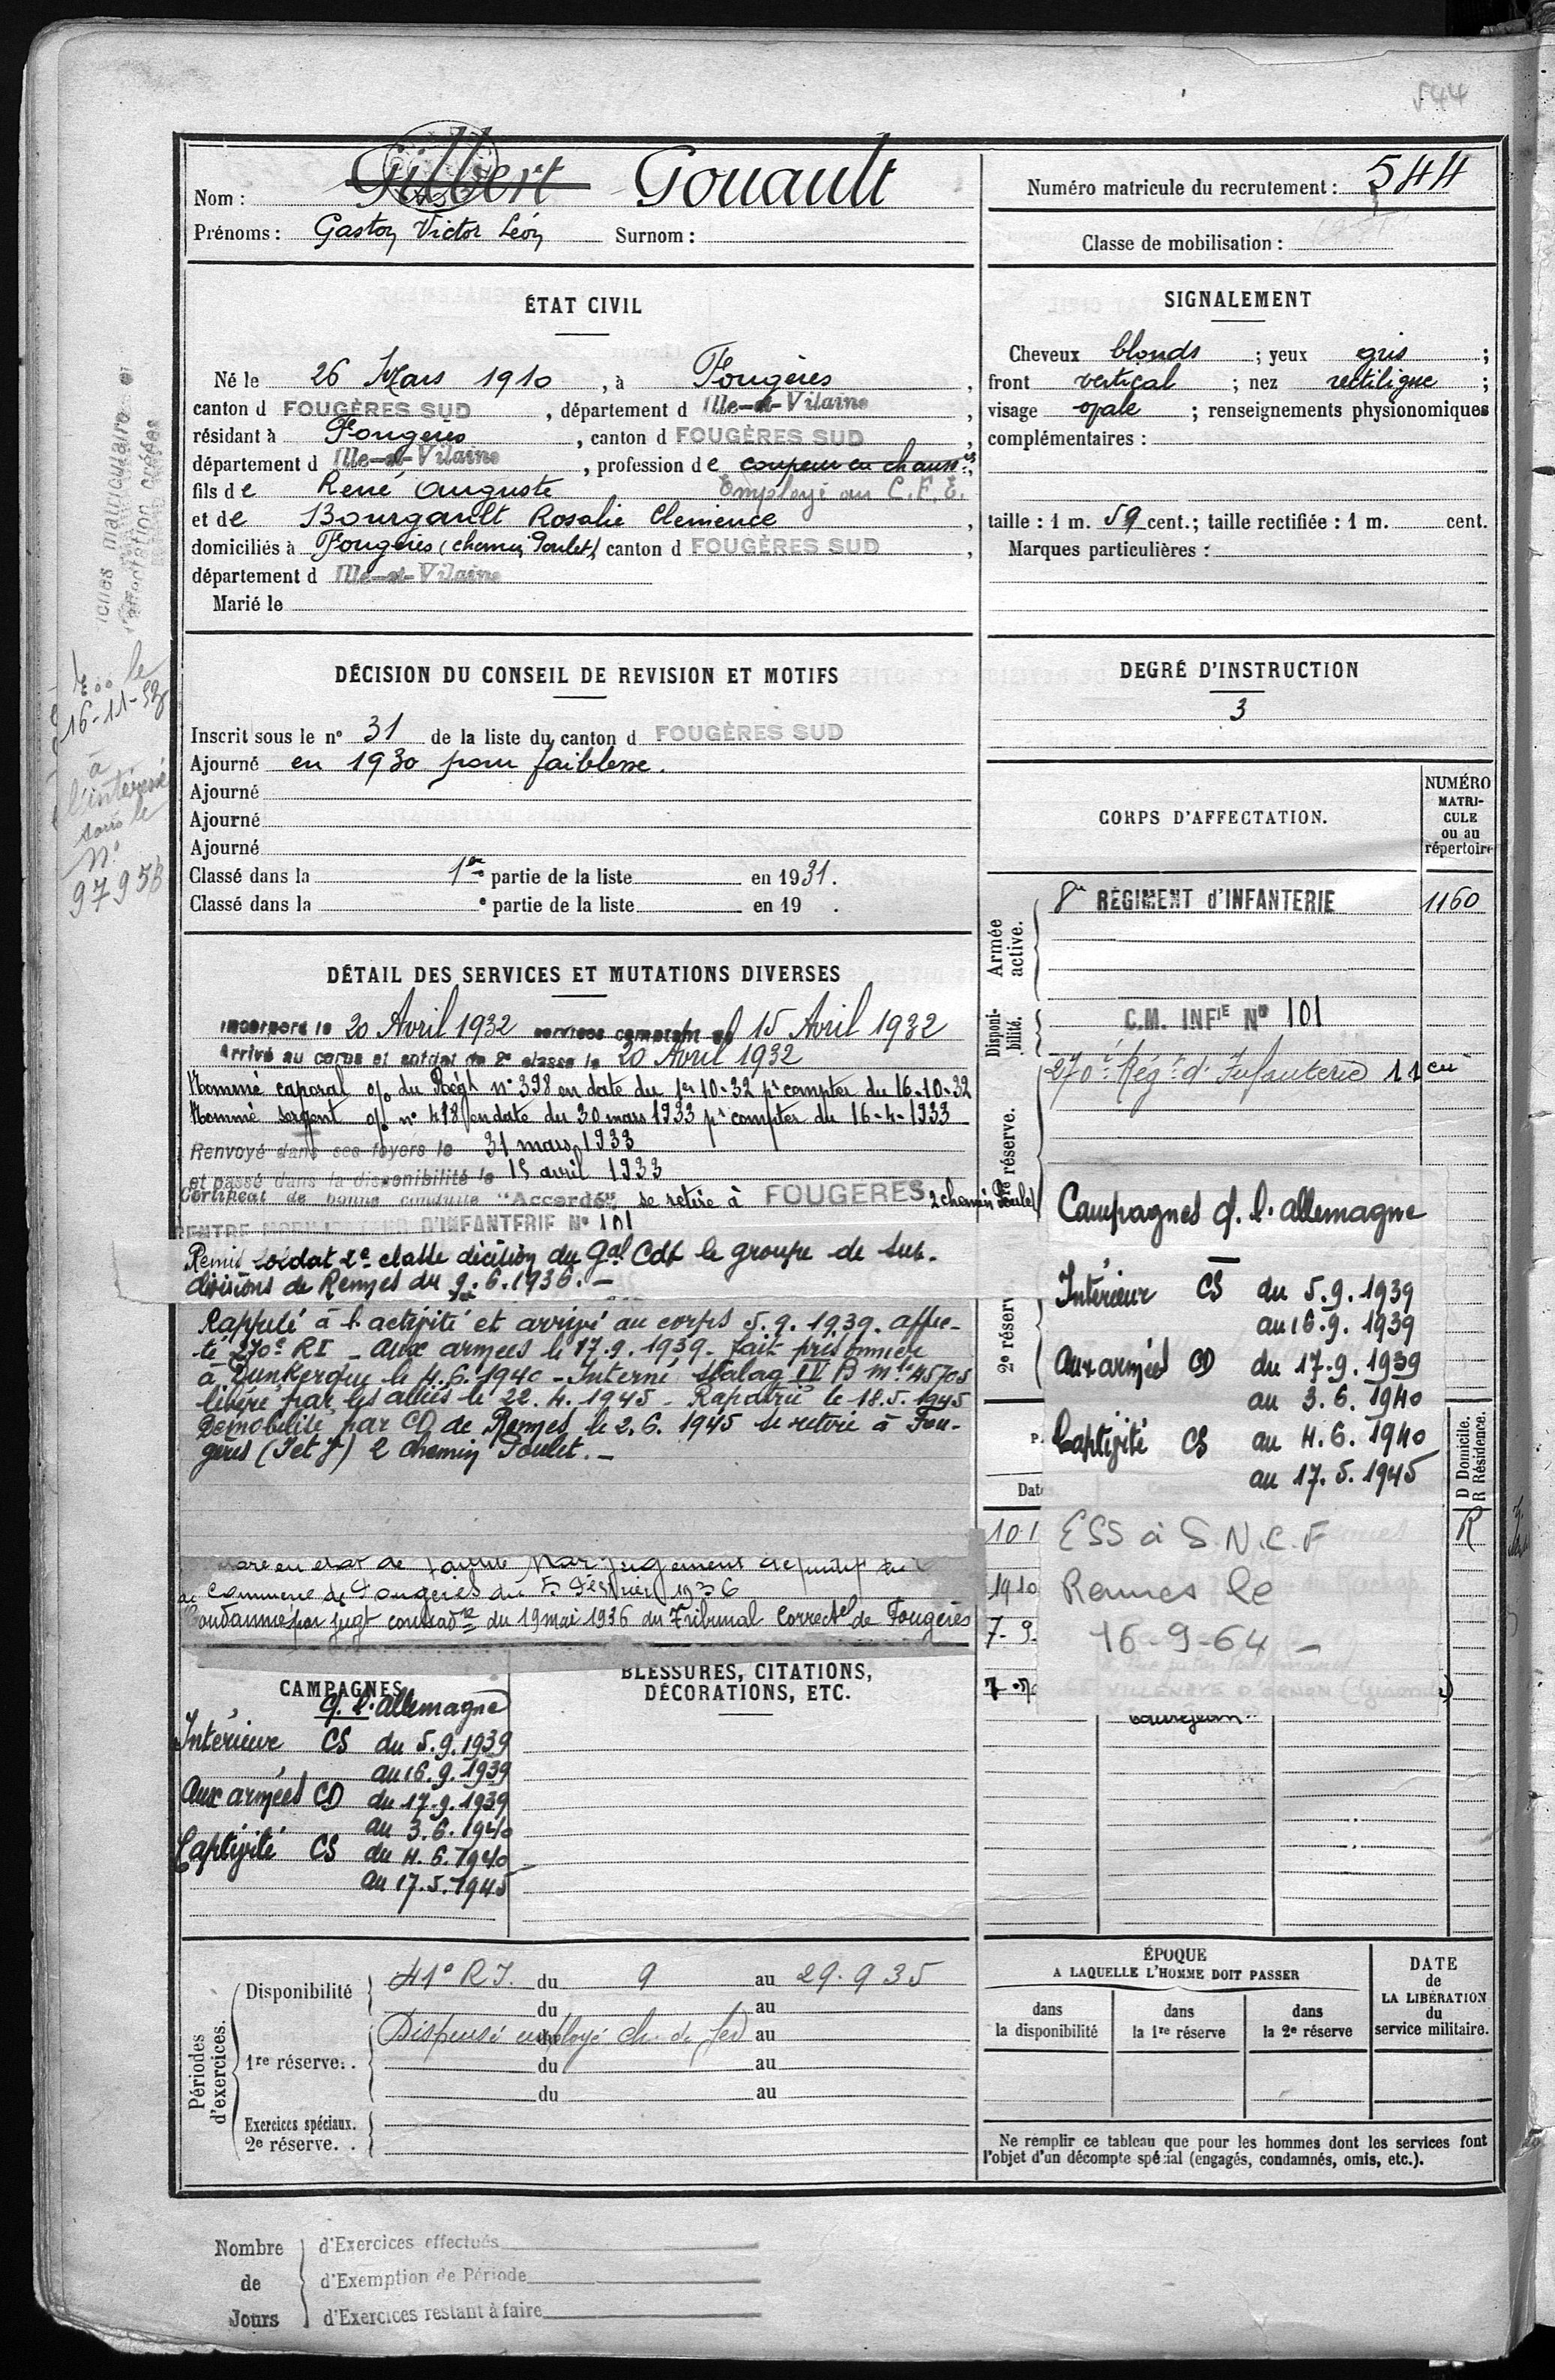 544
Nom : Gilbert Gouault
Prénoms : Gaston Victor Léon Surnom :
Numéro matricule du recrutement : 544
Classe de mobilisation :
ÉTAT CIVIL
Né le 26 Mars 1910, à Fougères,
canton d FOUGÈRES SUD, département d Ille-et-Vilaine,
résidant à Fougères, canton d FOUGÈRES SUD,
département d Ille-et-Vilaine, profession de coupeur en chauss.res,
fils de René Auguste Employé au C.F.E.
et de Bourgault Rosalie Clémence,
domiciliés à Fougères (chemin Poulet) canton d FOUGÈRES SUD,
département d Ille-et-Vilaine
Marié le
SIGNALEMENT
Cheveux blonds ; yeux gris ;
front vertical ; nez rectiligne ;
visage ovale ; renseignements physionomiques
complémentaires :
taille : 1 m. 59 cent.; taille rectifiée : 1 m. cent.
Marques particulières :
DÉCISION DU CONSEIL DE REVISION ET MOTIFS
Inscrit sous le n° 31 de la liste du canton d FOUGÈRES SUD
Ajourné en 1930 pour faiblesse.
Ajourné
Ajourné
Ajourné
Classé dans la 1re partie de la liste en 1931.
Classé dans la e partie de la liste en 19 .
DEGRÉ D'INSTRUCTION
3
le
16-11-53
à
l'intéressé
sous le
N°
CORPS D'AFFECTATION.
NUMÉRO
MATRI-
CULE
ou au
répertoire
Armée active.
8e RÉGIMENT d'INFANTERIE 1160
Disponi-bilité.
C.M. INFIE N° 101
270e Régt d'Infanterie 11 cie
réserve.
2e réserv
DÉTAIL DES SERVICES ET MUTATIONS DIVERSES
Incorporé le 20 Avril 1932 services comptant du 15 Avril 1932
Arrivé au corps et soldat de 2e classe le 20 Avril 1932
Nommé caporal o/o du Régt n° 398 en date du 1er-10-32 pr compter du 16-10-32
Nommé sergent o/o n° 498 en date du 30 mars 1933 pr compter du 16-4-1933
Renvoyé dans ses foyers le 31 mars 1933
et passé dans la disponibilité le 15 avril 1933
Certificat de bonne conduite "Accordé" se retire à FOUGERES 2 chemin Poulet
CENTRE MOBILISATEUR D'INFANTERIE N° 101
Remis soldat 2e classe décision du Gal Cdt le groupe de sub-
divisions de Rennes du 9.6.1936. —
Rappelé à l'activité et arrivé au corps 5.9.1939. affec-
té 270e RI - aux armées le 17.9.1939. fait prisonnier
à Dunkerque le 4.6.1940 - Interné Stalag IV B mle 45705
libéré par les alliés le 22.4.1945 - Rapatrié le 18.5.1945
Démobilisé par CD de Rennes le 2.6.1945 se retire à Fou-
gères (I et V) 2 chemin Poulet. —
en état de faillite par jugement
de commerce de Fougères du 5 Février 1936
Condamné par jugt contradre du 19 mai 1936 du Tribunal Correctel de Fougères
Campagnes c. l'Allemagne
Intérieur CS du 5.9.1939
au 16.9.1939
Aux armées CD du 17.9.1939
au 3.6.1940
Captivité CS du 4.6.1940
au 17.5.1945
ESS à S.N.C.F
Rennes le
16-9-64 —
Dat
101
1910
7-9.
VILLENAVE D'ORNON (Gironde)
D Domicile.
R Résidence.
R
CAMPAGNES
c. l'Allemagne
Intérieur CS du 5.9.1939
au 16.9.1939
Aux armées CD du 17.9.1939
au 3.6.1940
Captivité CS du 4.6.1940
au 17.5.1945
BLESSURES, CITATIONS,
DÉCORATIONS, ETC.
Périodes d'exercices.
Disponibilité 41e R.I. du 9 au 29.9 35
du au
1re réserve. . Dispensé employé ch. de fer au
du au
du au
Exercices spéciaux.
2e réserve. .
ÉPOQUE
A LAQUELLE L'HOMME DOIT PASSER
dans la disponibilité
dans la 1re réserve
dans la 2e réserve
DATE
de
LA LIBÉRATION
du
service militaire.
Ne remplir ce tableau que pour les hommes dont les services font
l'objet d'un décompte spécial (engagés, condamnés, omis, etc.).
Nombre de Jours
d'Exercices effectués
d'Exemption de Période
d'Exercices restant à faire